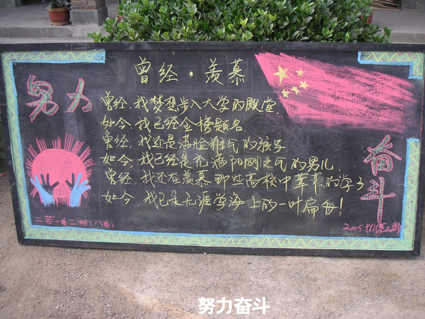 曾经·羡慕
努力
曾经,我梦想步入大学的殿堂
如今,我已经金榜题名
曾经,我还是满脸稚气的孩子
如今,我已经是充满阳刚之气的男儿
曾经,我还在羡慕那些高校中莘莘的学子
如今,我已是无涯学海上的一叶扁舟!
奋斗
努力奋斗